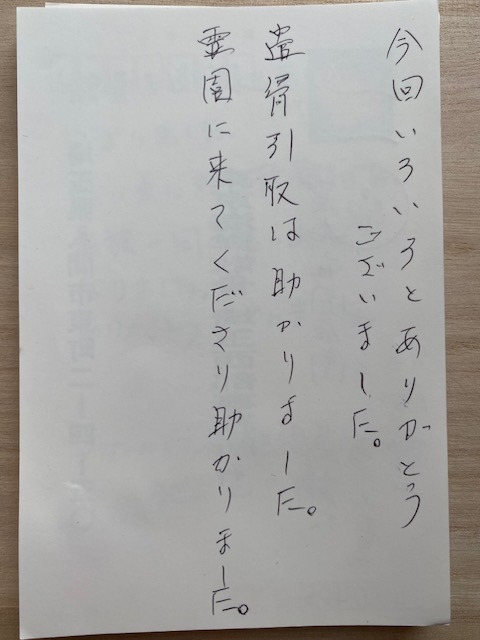 今回いろいろとありがとう
ございました。
遺骨引取は助かりました。
霊園に来てくださり助かりました。